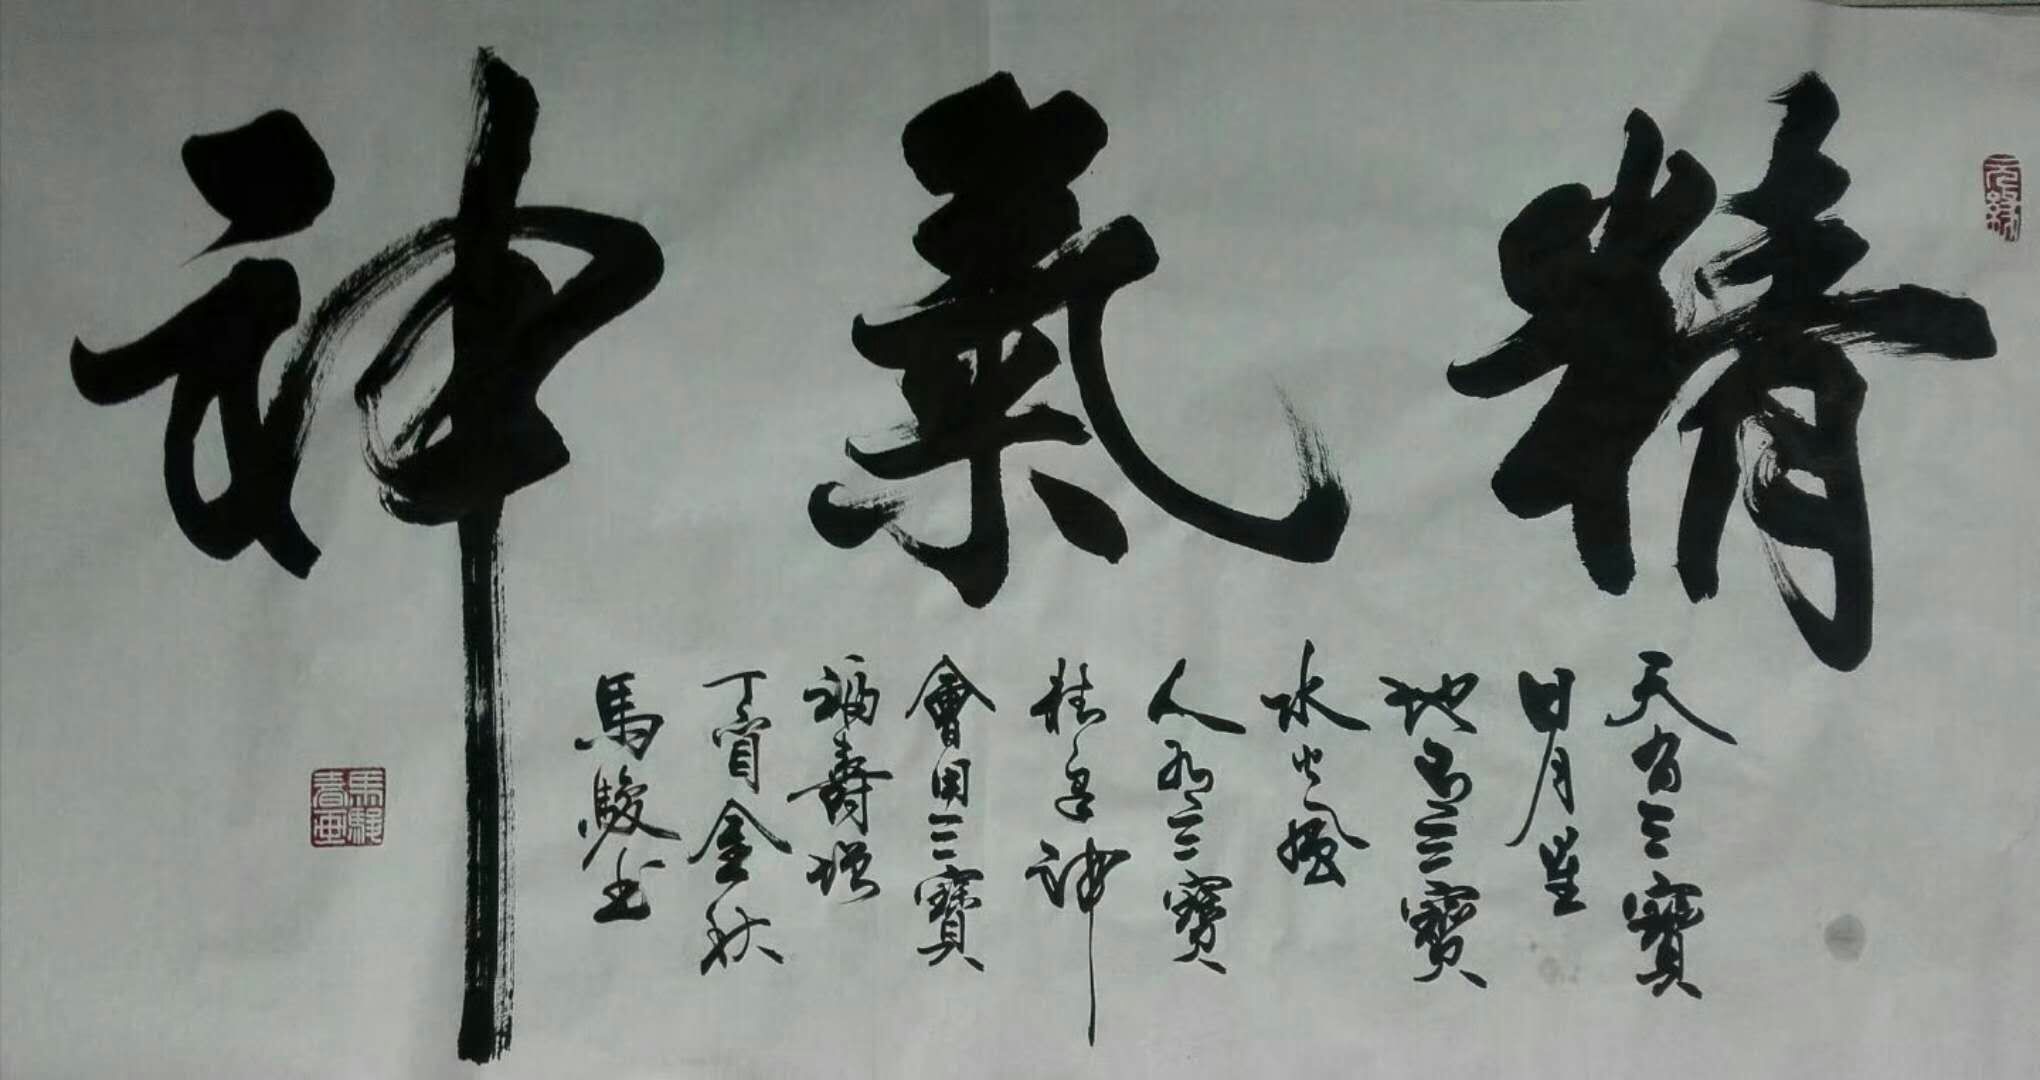 精氣神
天有三寶
日月星
地有三寶
水火風
人有三寶
精氣神
會用三寶
福壽增
丁酉金秋
馬駿书